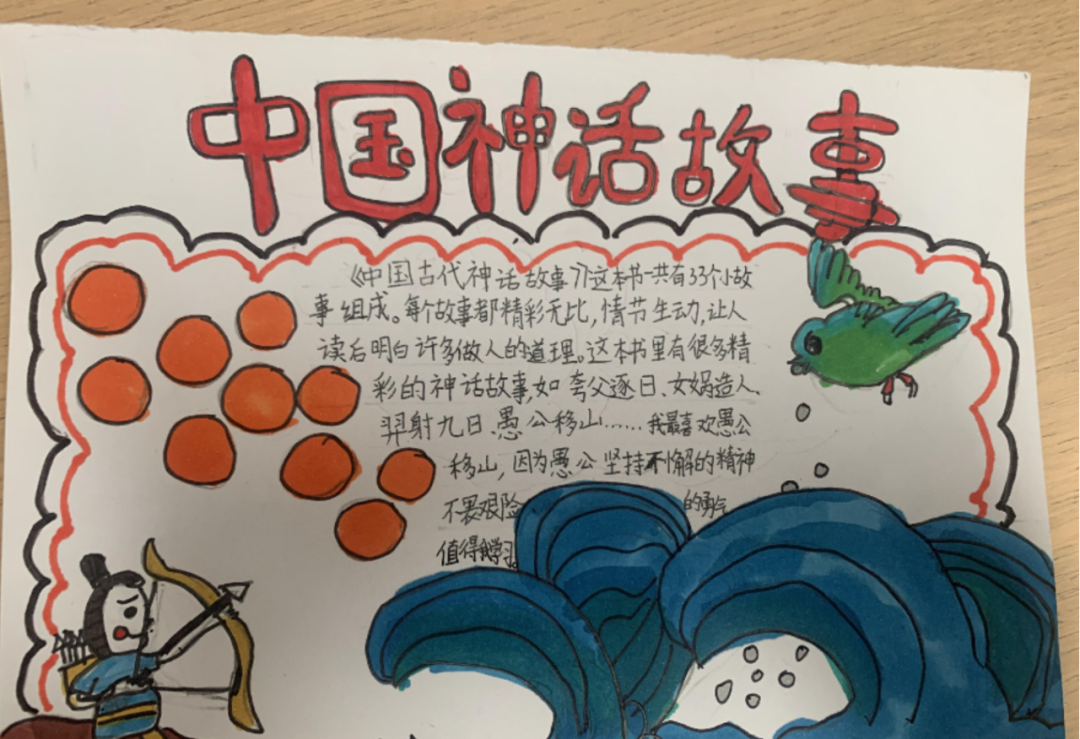 中国神话故事
《中国古代神话故事》这本书一共有33个小故
事组成。每个故事都精彩无比,情节生动,让人
读后明白许多做人的道理。这本书里有很多精
彩的神话故事,如夸父逐日、女娲造人、
羿射九日、愚公移山……我最喜欢愚公
移山,因为愚公坚持不懈的精神
不畏艰险 的勇气
值得我学习。